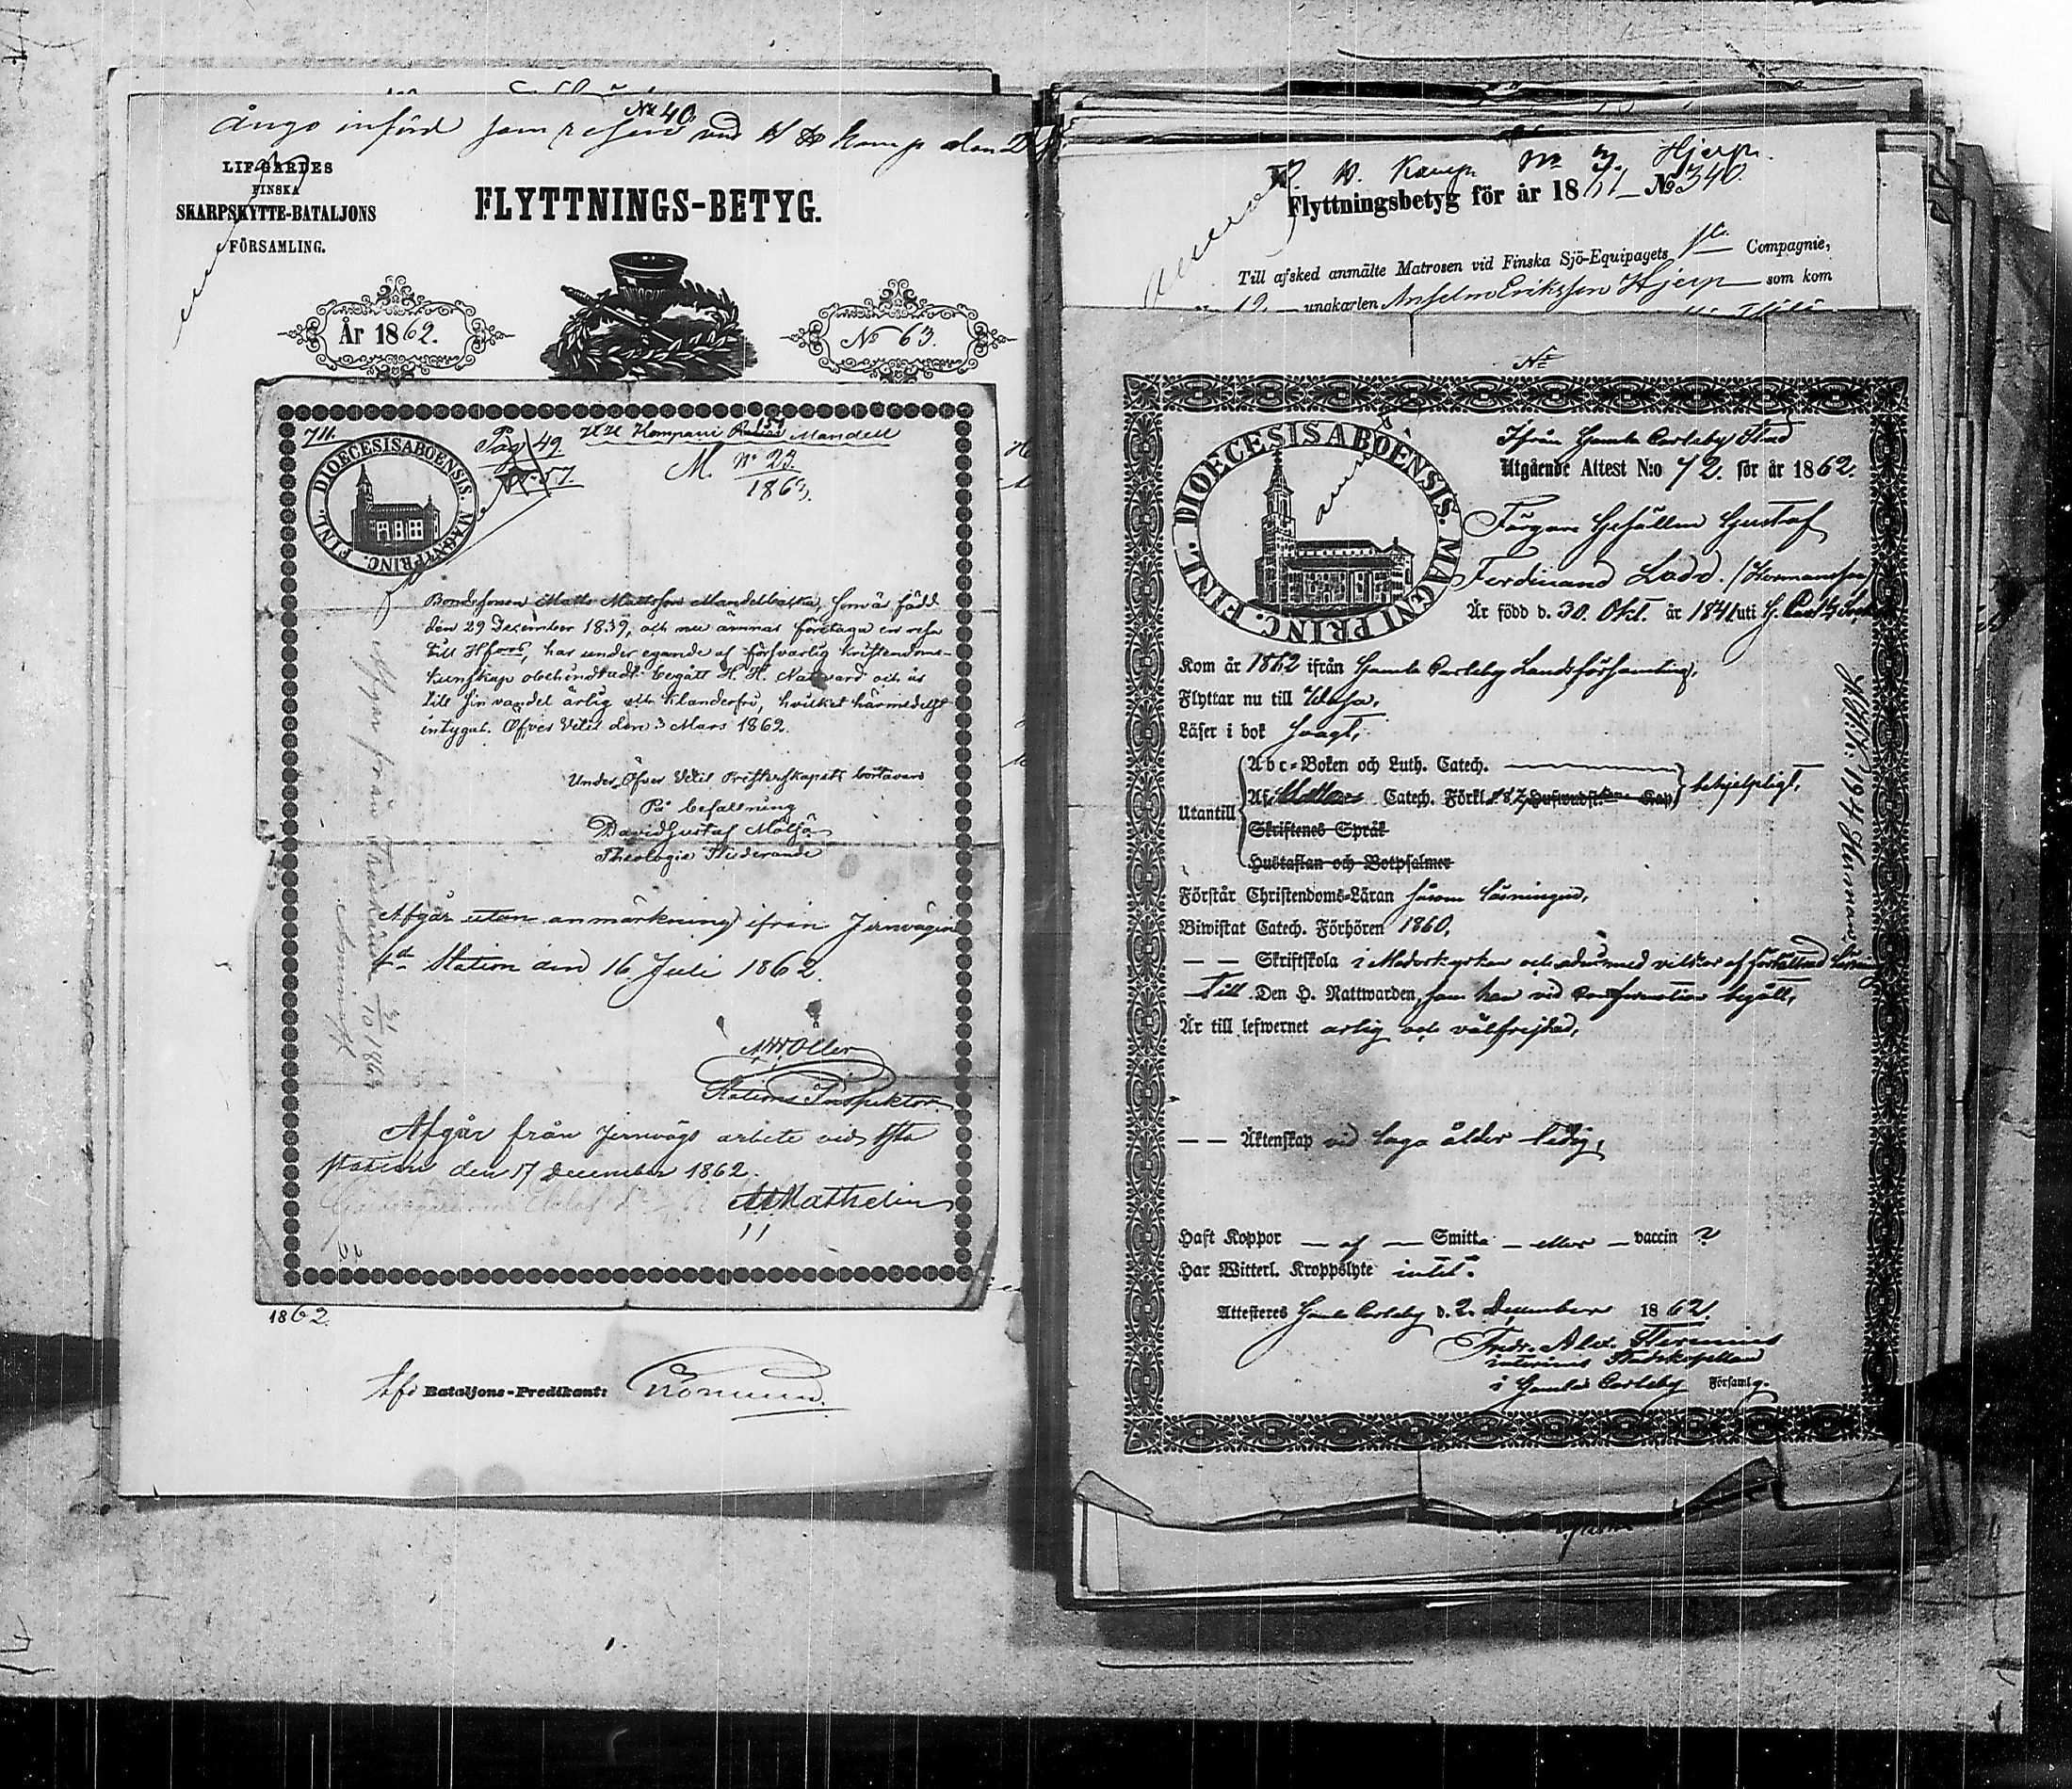 No 40
ångo införd som reserv vid
LIF-GARDES
FINSKA
SKARPSKYTTE-BATALJONS
FÖRSAMLING.
FLYTTNINGS-BETYG.
År 1862.
No 63.
711.
Pag 49
57.
Kompani Mandell
M. No 23.
1863.
DIOECESIS ABOËNSIS. MAGNI PRINC. FINL.
Bondesonen Matts Mattsson Mandelbacka, som är född
den 29 December 1839, och nu ämnar företaga en resa
till Hfors, har under egande af försvarlig kristendoms-
kunskap obehindradt begått H. H. Nattvard och är
till sin vandel ärlig och klanderfri, hvilket härmedelst
intygat. Öfver Vetil den 3 Mars 1862.
Under Öfver Vetil Presterskapets bortavaro
På befallning
David Gustaf Möljä
Theologie Studerande
Afgår utan anmärkning ifrån Jernvägens
Station den 16 Juli 1862.
Stations Inspektor
Afgår från Jernvägs arbete vid
station den 17 December 1862.
1862
Bataljons-Predikant:
Komp. No 3. Hjerp.
Flyttningsbetyg för år 1871 No 340.
Till afsked anmälte Matrosen vid Finska Sjö-Equipagets Compagnie,
12 ungkarlen Anselm Eriksson Hjerp som kom
No
DIOECESIS ABOËNSIS. MAGNI PRINC. FINL.
Ifrån Gamla Carleby Stad
Utgående Attest N:o 72. för år 1862.
Färgare Gesällen Gustaf
Ferdinand Ladd. (Hermansson)
Är född d. 30. Okt. år 1841 uti G. Carleby
Kom år 1862 ifrån Gamla Carleby Landsförsamling.
Flyttar nu till Wasa.
Läser i bok svagt,
Utantill
Abc-Boken och Luth. Catech.
Catech. Förkl. Hufwudst. Kap
behjelpligt,
Skriftenes Språk
Hustaflan och Botpsalmer
Förstår Christendoms-Läran såsom läsningen,
Biwistat Catech. Förhören 1860.
— — Skriftskola i Moderkyrkan
Till Den H. Nattwarden, som han vid Confirmation begått,
Är till lefwernet ärlig och välfrejdad,
— — Äktenskap vid laga ålder ledig,
Haft Koppor — af — Smitta — eller — vaccin ?
Har Witterl. Kroppslyte intet.
Attesteres Gamla Carleby d. 2. December 1862.
Fredr. Alex.
interims Stadskapellan
i Gamla Carleby Församlg.